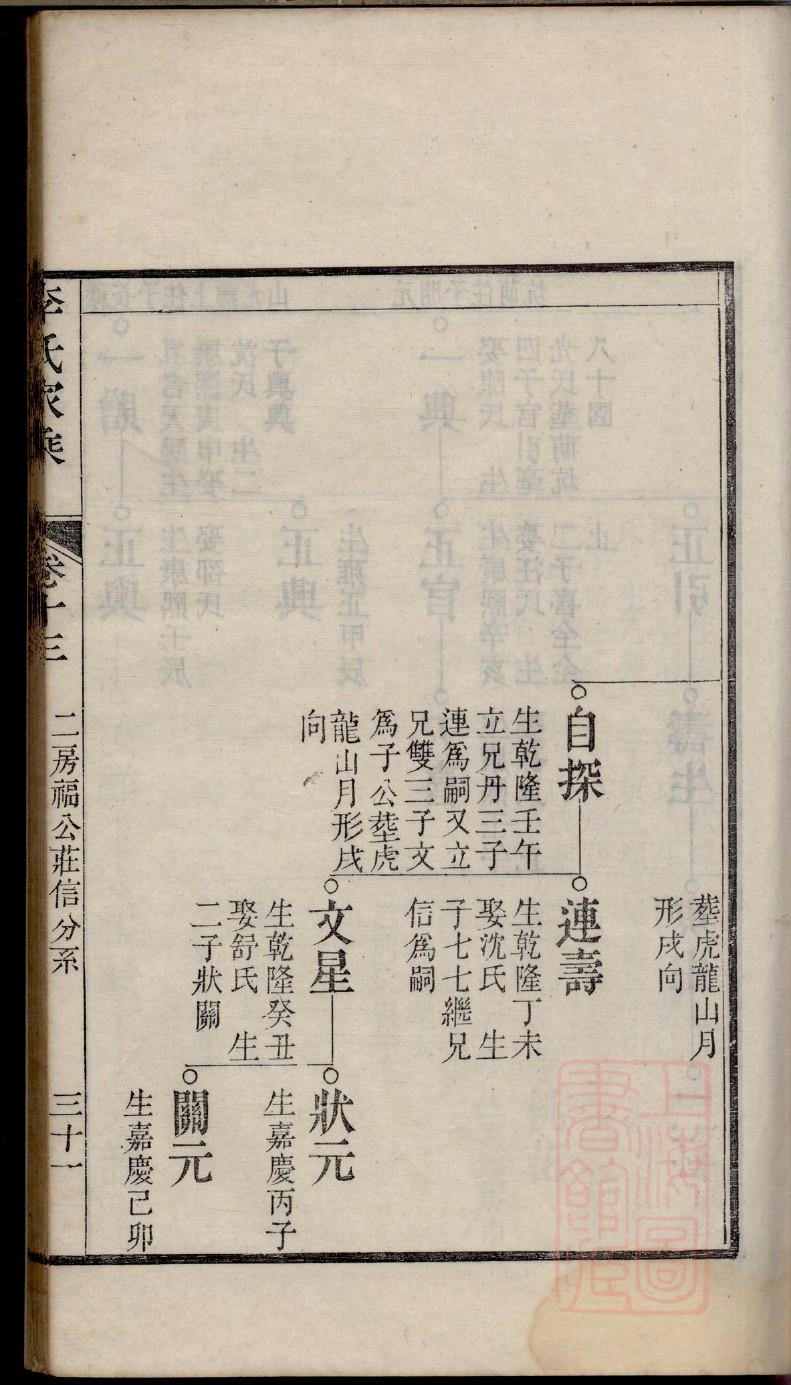 塟虎龍山月
形戌向
自探
生乾隆壬午
立兄丹三子
連爲嗣又立
兄雙三子文
爲子公塟虎
龍山月形戌
向
連壽
生乾隆丁未
娶沈氏　生
子七七繼兄
信爲嗣
文星
生乾隆癸丑
娶舒氏　生
二子狀關
狀元
生嘉慶丙子
關元
生嘉慶己卯
李氏家乘
卷十三
二房福公莊信分系
三十一
上海圖書館藏